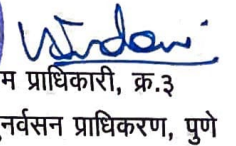 म प्राधिकारी, क्र.३
नर्वसन प्राधिकरण, पुणे